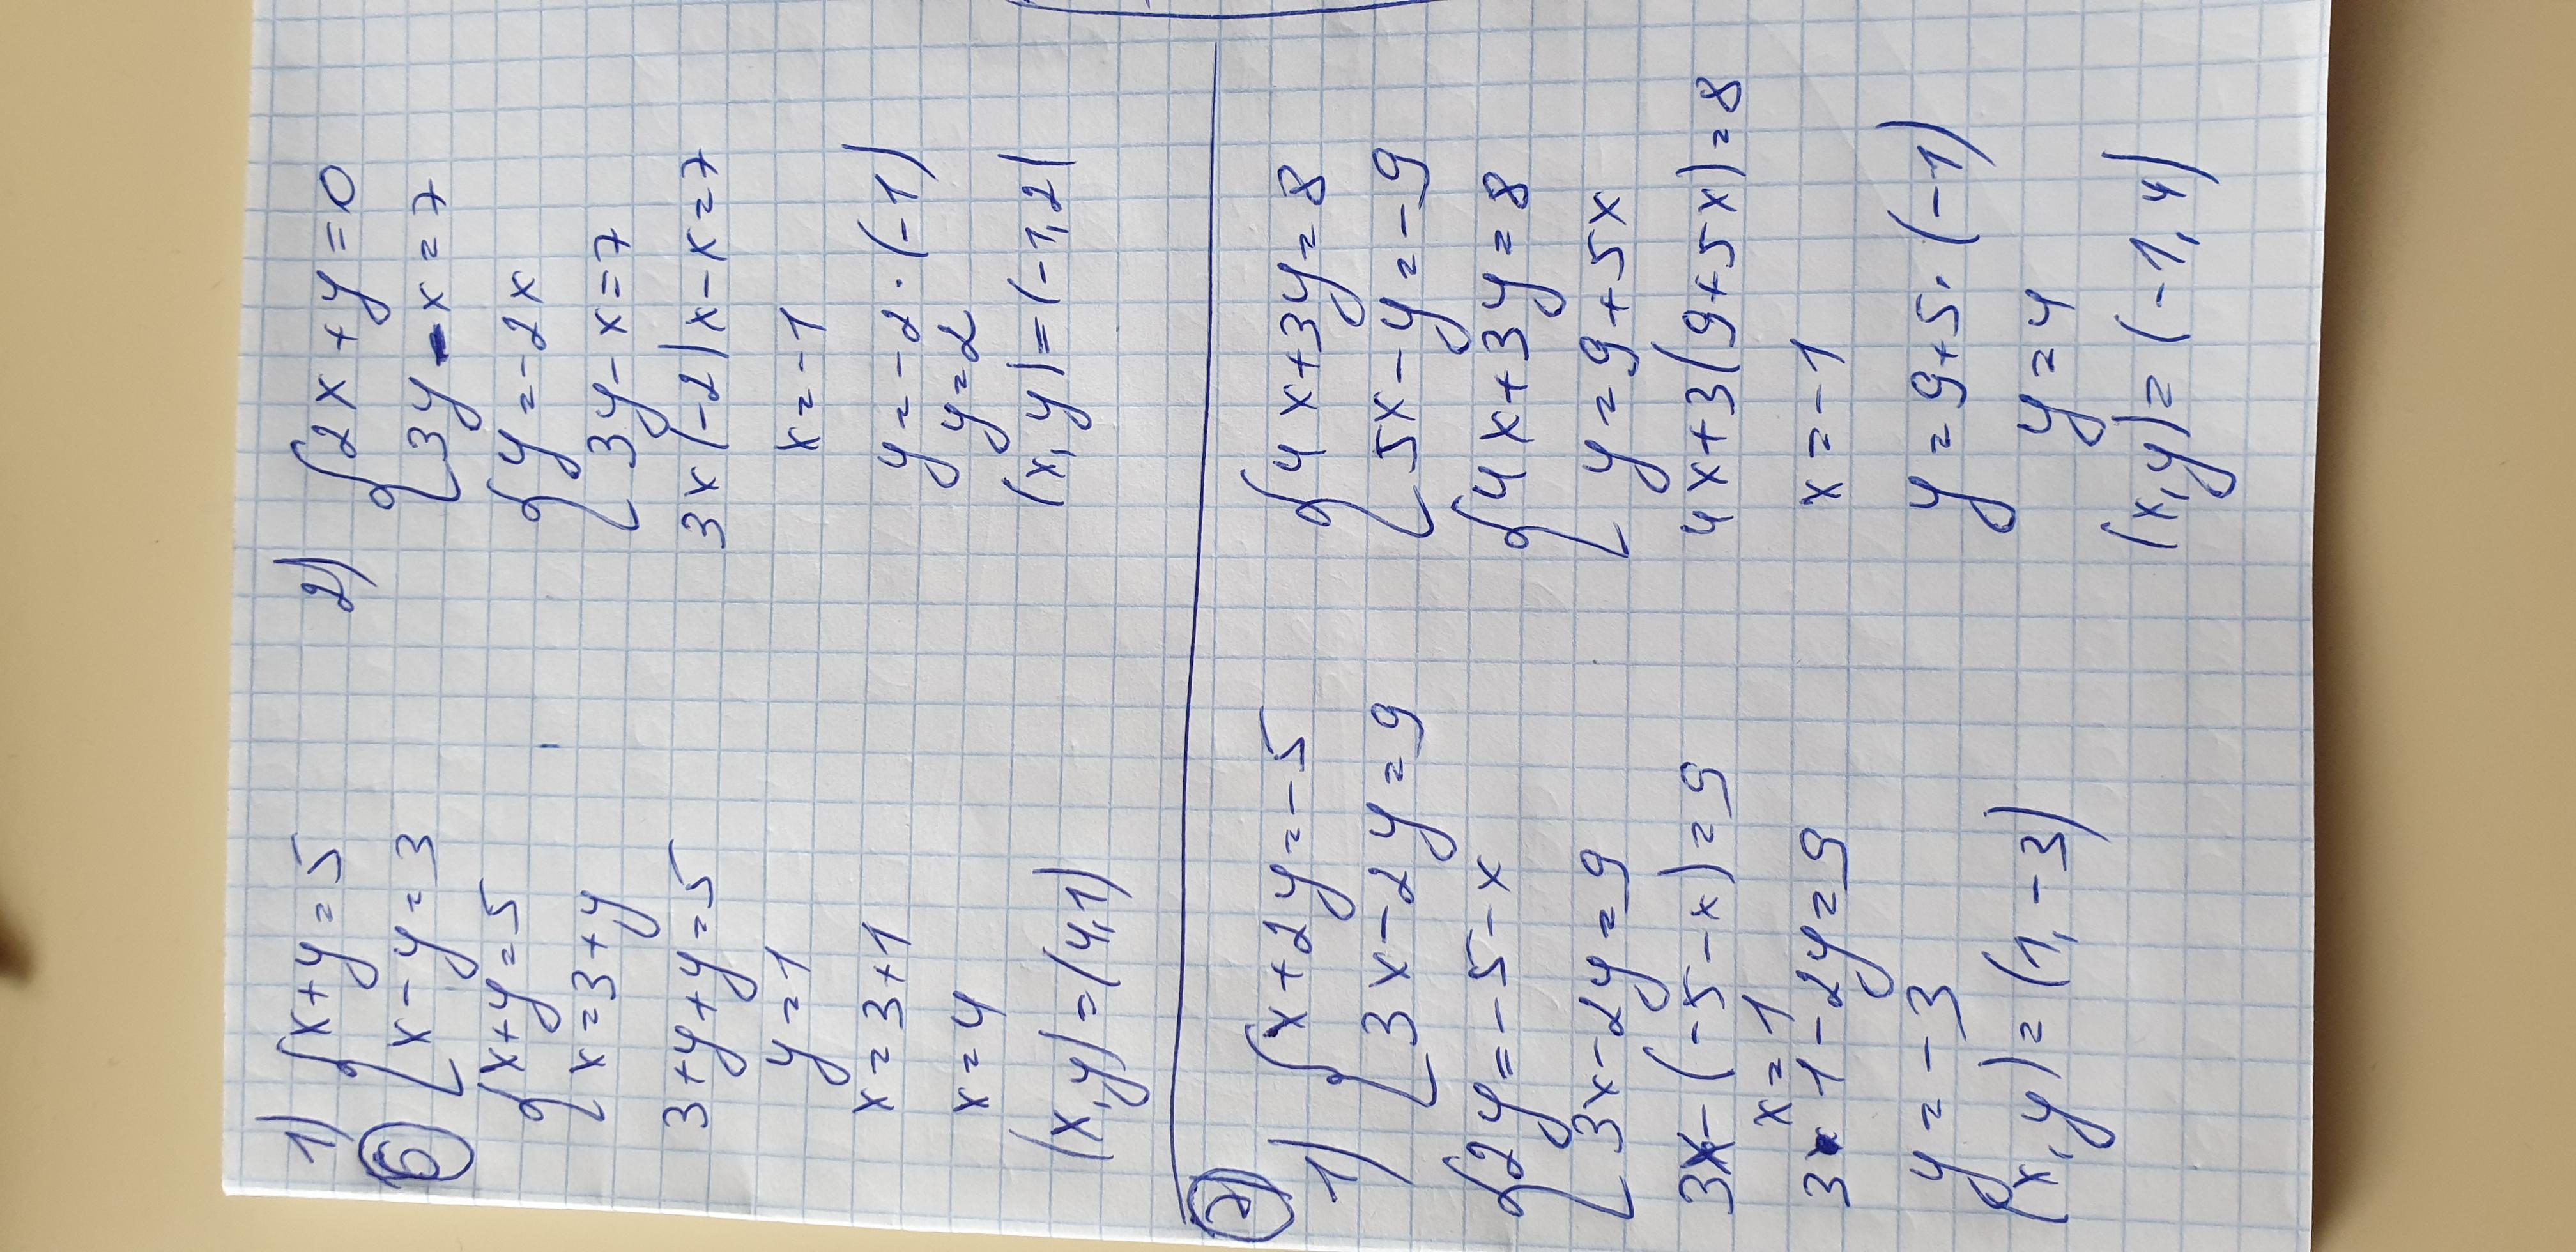 1)
6
{x+y=5
x-y=3
{x+y=5
x=3+y
3+y+y=5
y=1
x=3+1
x=4
(x,y)=(4,1)
2)
{2x+y=0
3y-x=7
{y=-2x
3y-x=7
3x(-2)x-x=7
x=-1
y=-2·(-1)
y=2
(x,y)=(-1,2)
1)
{x+2y=-5
3x-2y=9
{2y=-5-x
3x-2y=9
3x-(-5-x)=9
x=1
3·1-2y=9
y=-3
(x,y)=(1,-3)
{4x+3y=8
5x-y=-9
{4x+3y=8
y=9+5x
4x+3(9+5x)=8
x=-1
y=9+5·(-1)
y=4
(x,y)=(-1,4)